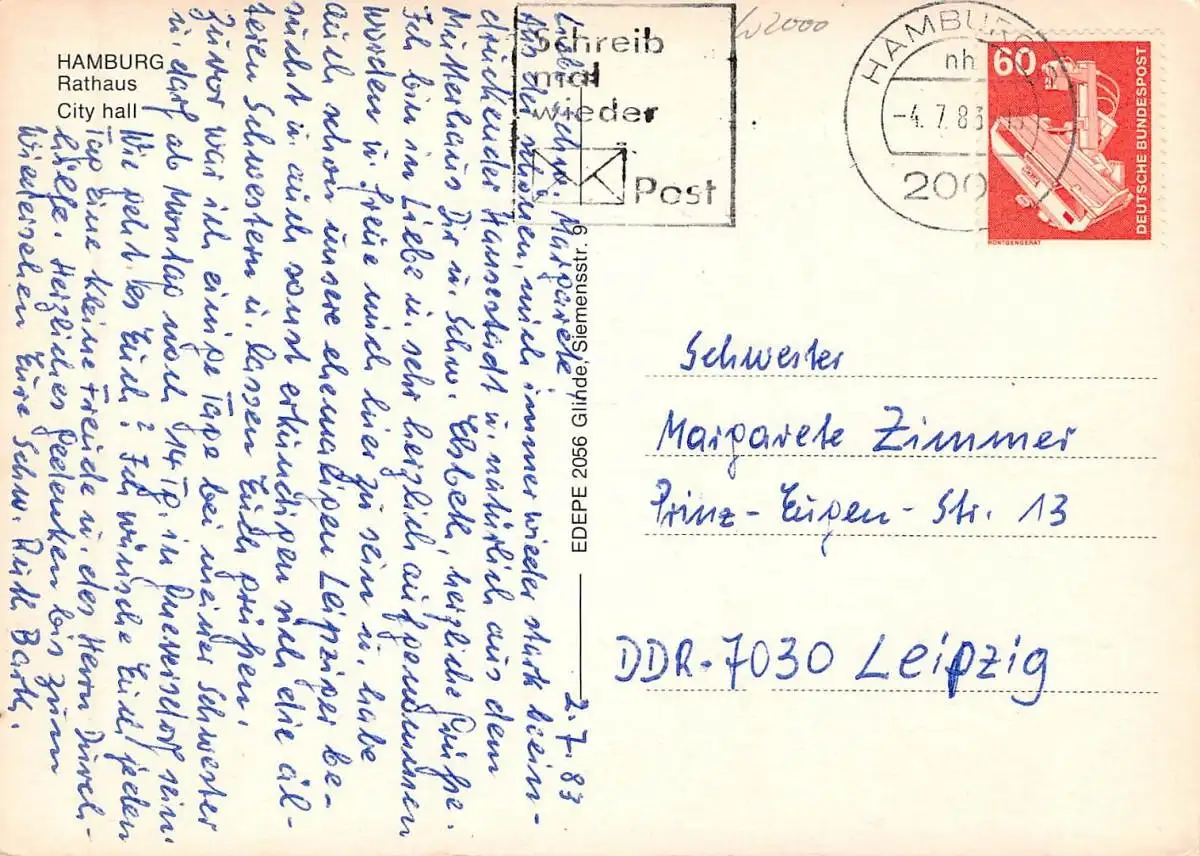 HAMBURG
Rathaus
City hall
Schreib
mal
wieder
Post
W2000
HAMBURG
nh
-4.7.83
200
60
DEUTSCHE BUNDESPOST
RÖNTGENGERÄT
EDEPE 2056 Glinde, Siemensstr. 9
2.7.83
Liebe Schw. Margarete
Aus der schönen, mich immer wieder stark beein-
druckender Hansestadt u. natürlich aus dem
Mutterhaus Dir u. Schw. Elsbeth, herzliche Grüße.
Ich bin in Liebe u. sehr herzlich aufgenommen
worden u. freue mich hier zu sein u. habe
auch schon unsere ehemaligen Leipziger be-
sucht u. auch sonst erkundigen sich die äl-
teren Schwestern u. lassen Euch grüßen.
Zuvor war ich einige Tage bei meiner Schwester
u. darf ab Montag noch 14 Tg. in sein.
Wie geht es Euch? Ich wünsche Euch jeden
Tag eine kleine Freude u. des Herrn Durch-
hilfe. Herzliches Gedenken bis zum
Wiedersehen Eure Schw. Ruth Barth.
Schwester
Margarete Zimmer
Prinz-Eugen-Str. 13
DDR-7030 Leipzig